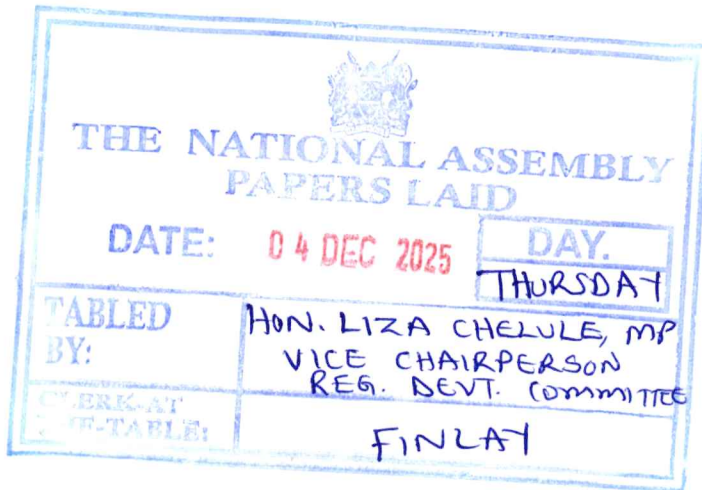 THE NATIONAL ASSEMBLY
PAPERS LAID
DATE: 04 DEC 2025 DAY.
THURSDAY
TABLED BY: HON. LIZA CHELULE, MP
VICE CHAIRPERSON
REG. DEVT. COMMITTEE
CLERK-AT THE-TABLE: FINLAY